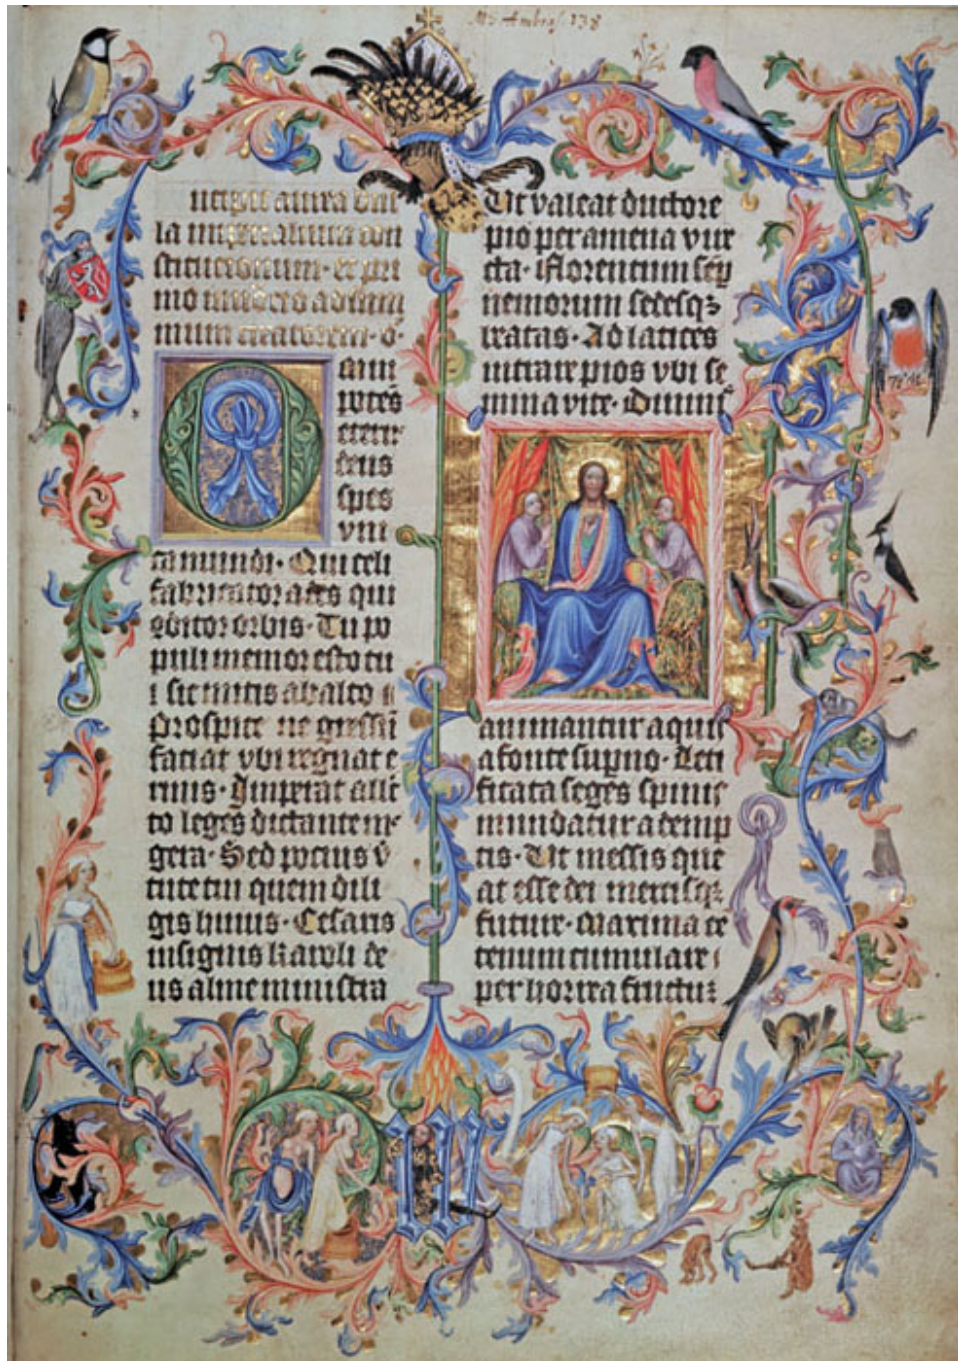 Ms Ambras. 138
ncipit aurea bul
la imperialium con
stitucionum · et pri
mo inuocacio ad sum
mum creatorem · o ·
mni
potēs
eterne
deus
spes
vni
ca mundi · Qui celi
fabricator ades qui
conditor orbis · Tu po
puli memor esto tu
i sic mitis ab alto
Prospice ne gressū
faciat vbi regnat e
rinis · Imperat alle
cto leges dictante me
gera · Sed pocius v̄
tute tui quem dili
gis huius · Cesaris
insignis karoli de
us alme ministra
Ut valeat ductore
pio per amena vire
cta · Florentum semp
nemorum sedesqʒ
beatas · Ad latices
intrare pios vbi se
mina vite · Diuinis
animantur aquis
a fonte superno · Leti
ficata seges spinis
mundatur ademp
tis · Ut messis que
at esse dei mercisqʒ
future · Maxima ce
tenum cumulare
per horrea fructus